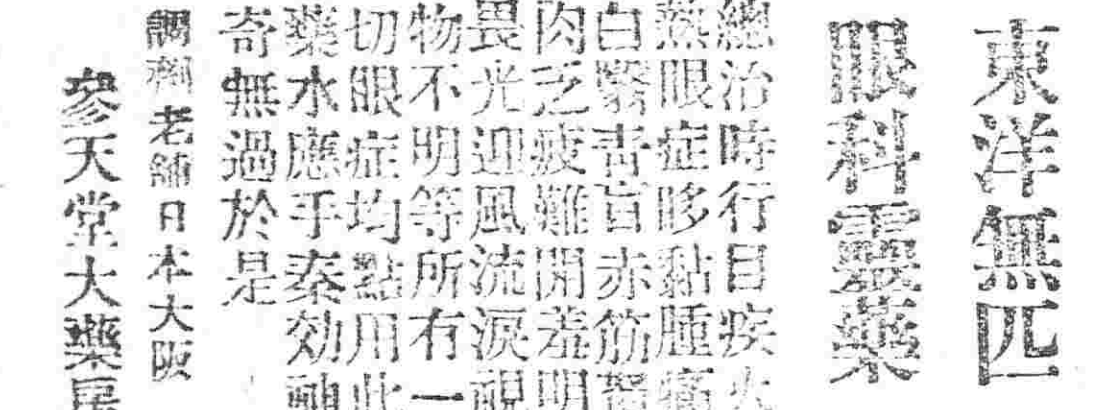 東洋無匹
眼科靈藥
總治時行目疾火
熱眼症眵黏腫痛
白翳青盲赤筋翳
肉乏疲難開羞明
畏光迎風流淚視
物不明等所有一
切眼症均點用此
藥水應手奏効神
奇無過於是
調劑老舖日本大阪
參天堂大藥房